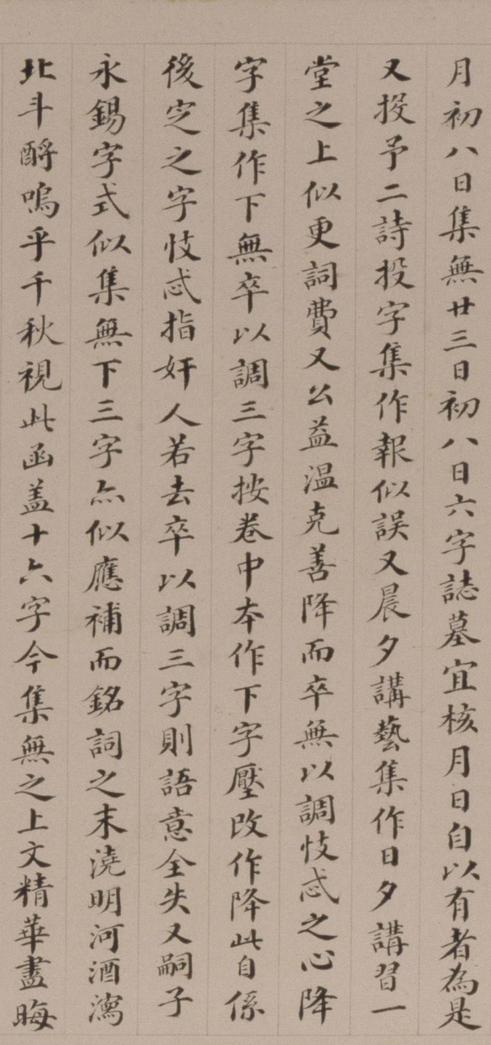 月初八日集無廿三日初八日六字誌墓宜核月日自以有者為是
又投予二詩投字集作報似誤又晨夕講藝集作日夕講習一
堂之上似更詞費又公益温克善降而卒無以調忮忒之心降
字集作下無卒以調三字按卷中夲作下字壓改作降此自係
後定之字忮忒指奸人若去卒以調三字則語意全失又嗣子
永錫字式似集無下三字亦似應補而銘詞之末澆明河酒瀉
北斗酹嗚乎千秋視此函盖十六字今集無之上文精華盡晦